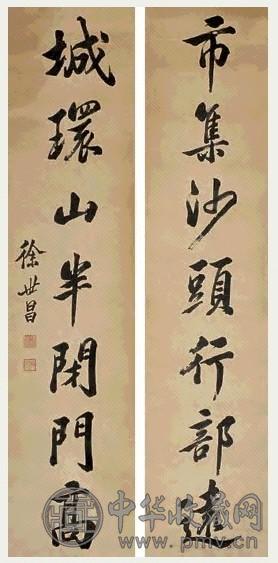 市集沙頭行部遠
城環山半閉門高
徐世昌
中华收藏网
www.pmv.cn